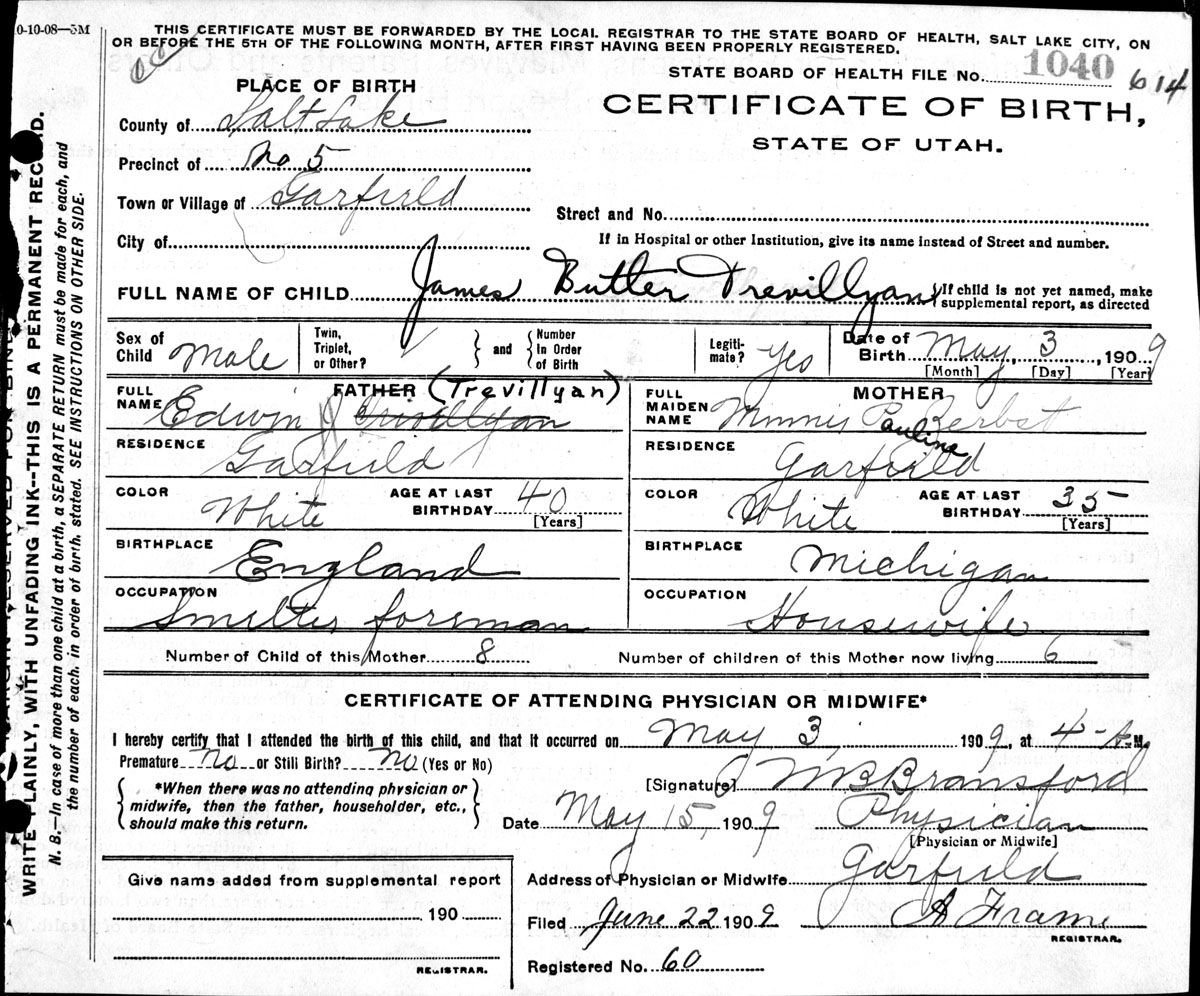 0-10-08—3M
THIS CERTIFICATE MUST BE FORWARDED BY THE LOCAL REGISTRAR TO THE STATE BOARD OF HEALTH, SALT LAKE CITY, ON
OR BEFORE THE 5TH OF THE FOLLOWING MONTH, AFTER FIRST HAVING BEEN PROPERLY REGISTERED.
STATE BOARD OF HEALTH FILE No. 1040 614
CERTIFICATE OF BIRTH,
STATE OF UTAH.
PLACE OF BIRTH
County of Salt Lake
Precinct of No. 5
Town or Village of Garfield
Street and No.
City of
If in Hospital or other Institution, give its name instead of Street and number.
FULL NAME OF CHILD James Butler Trevillyan
If child is not yet named, make
supplemental report, as directed
Sex of Child Male
Twin, Triplet, or Other?
and
Number In Order of Birth
Legiti-mate? Yes
Date of Birth May, 3, 1909
[Month] [Day] [Year]
FATHER (Trevillyan)
FULL NAME Edwin J
MOTHER
FULL MAIDEN NAME Minnie Pauline Zerbst
RESIDENCE Garfield
RESIDENCE Garfield
COLOR White
AGE AT LAST BIRTHDAY 40 [Years]
COLOR White
AGE AT LAST BIRTHDAY 35 [Years]
BIRTHPLACE England
BIRTHPLACE Michigan
OCCUPATION Smelter foreman
OCCUPATION Housewife
Number of Child of this Mother 8
Number of children of this Mother now living 6
CERTIFICATE OF ATTENDING PHYSICIAN OR MIDWIFE*
I hereby certify that I attended the birth of this child, and that it occurred on May 3, 1909, at 4-A.M.
Premature No or Still Birth? No (Yes or No)
[Signature] M B Bransford
*When there was no attending physician or
midwife, then the father, householder, etc.,
should make this return.
Date May 15, 1909
Physician
[Physician or Midwife]
Give name added from supplemental report
190
REGISTRAR.
Address of Physician or Midwife Garfield
Filed June 22 1909
A Frame
REGISTRAR.
Registered No. 60
WRITE PLAINLY, WITH UNFADING INK--THIS IS A PERMANENT RECORD.
N. B.—In case of more than one child at a birth, a SEPARATE RETURN must be made for each, and
the number of each, in order of birth, stated. SEE INSTRUCTIONS ON OTHER SIDE.